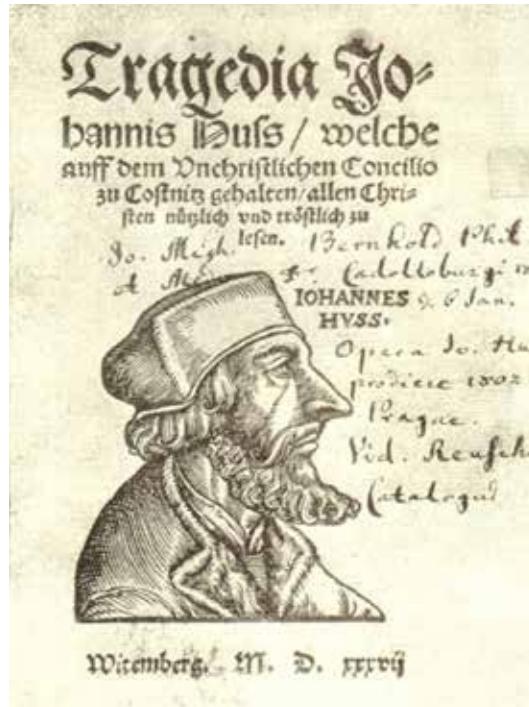 Tragedia Jo-
hannis Huss / welche
auff dem Vnchristlichen Concilio
zu Costnitz gehalten / allen Chri-
sten nützlich vnd tröstlich zu
lesen.
Jo. Bernhold Phil.
Cadoltzburgi
IOHANNES 6 Jan.
HVSS.
Opera Jo. Hu
prodiere
Pragae.
Vid. Reusch
Catalogus
Witemberg. M. D. xxxvij